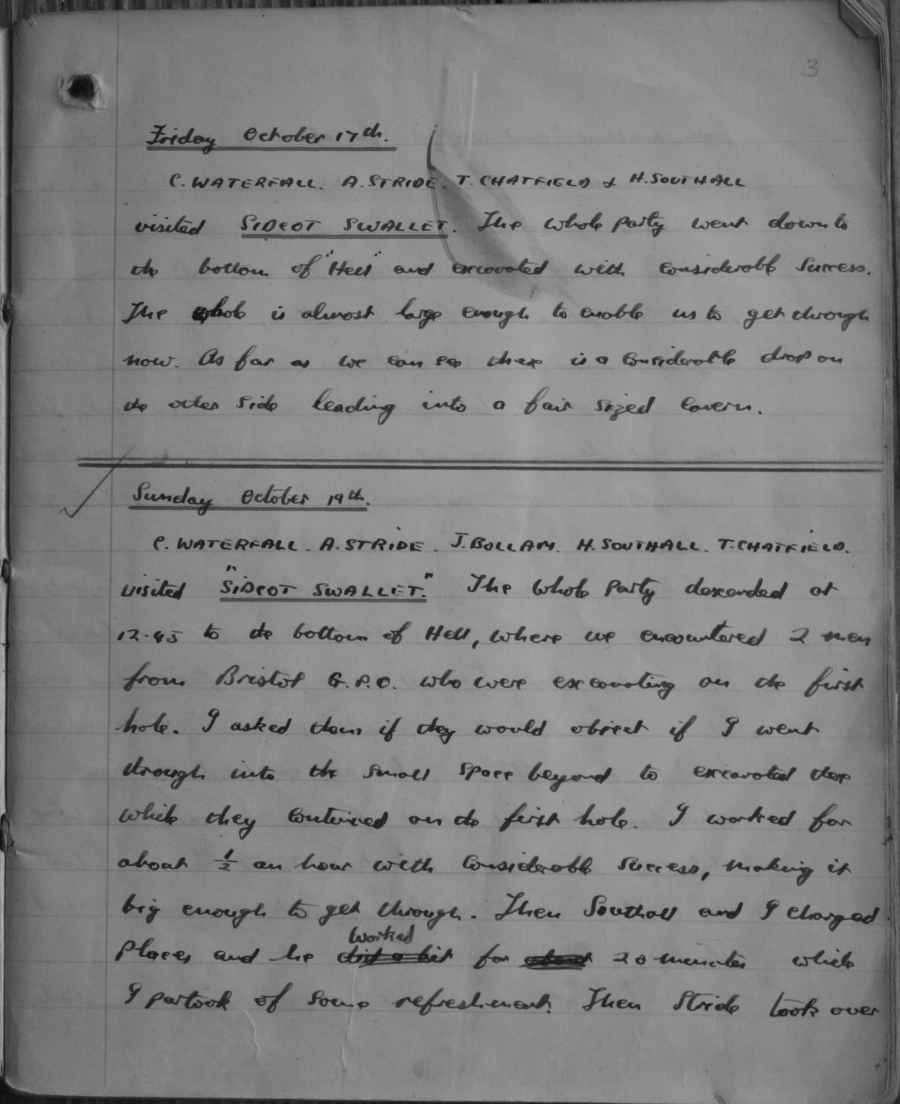 3
Friday October 17th.
C. WATERFALL. A. STRIDE. T. CHATFIELD & H. SOUTHALL
visited SIDCOT SWALLET. The whole party went down to
the bottom of "Hell" and excavated with considerable success.
The hole is almost large enough to enable us to get through
now. As far as we can see there is a considerable drop on
the other side leading into a fair sized cavern.
Sunday October 19th.
C. WATERFALL. A. STRIDE. J. BOLLAM. H. SOUTHALL. T. CHATFIELD.
visited "SIDCOT SWALLET." The whole party descended at
12.45 to the bottom of Hell, where we encountered 2 men
from Bristol G.P.O. who were excavating on the first
hole. I asked them if they would object if I went
through into the small space beyond to excavated there
while they continued on the first hole. I worked for
about ½ an hour with considerable success, making it
big enough to get through. Then Southall and I changed
worked
places and he did a bit for about 20 minutes while
I partook of some refreshment. Then Stride took over